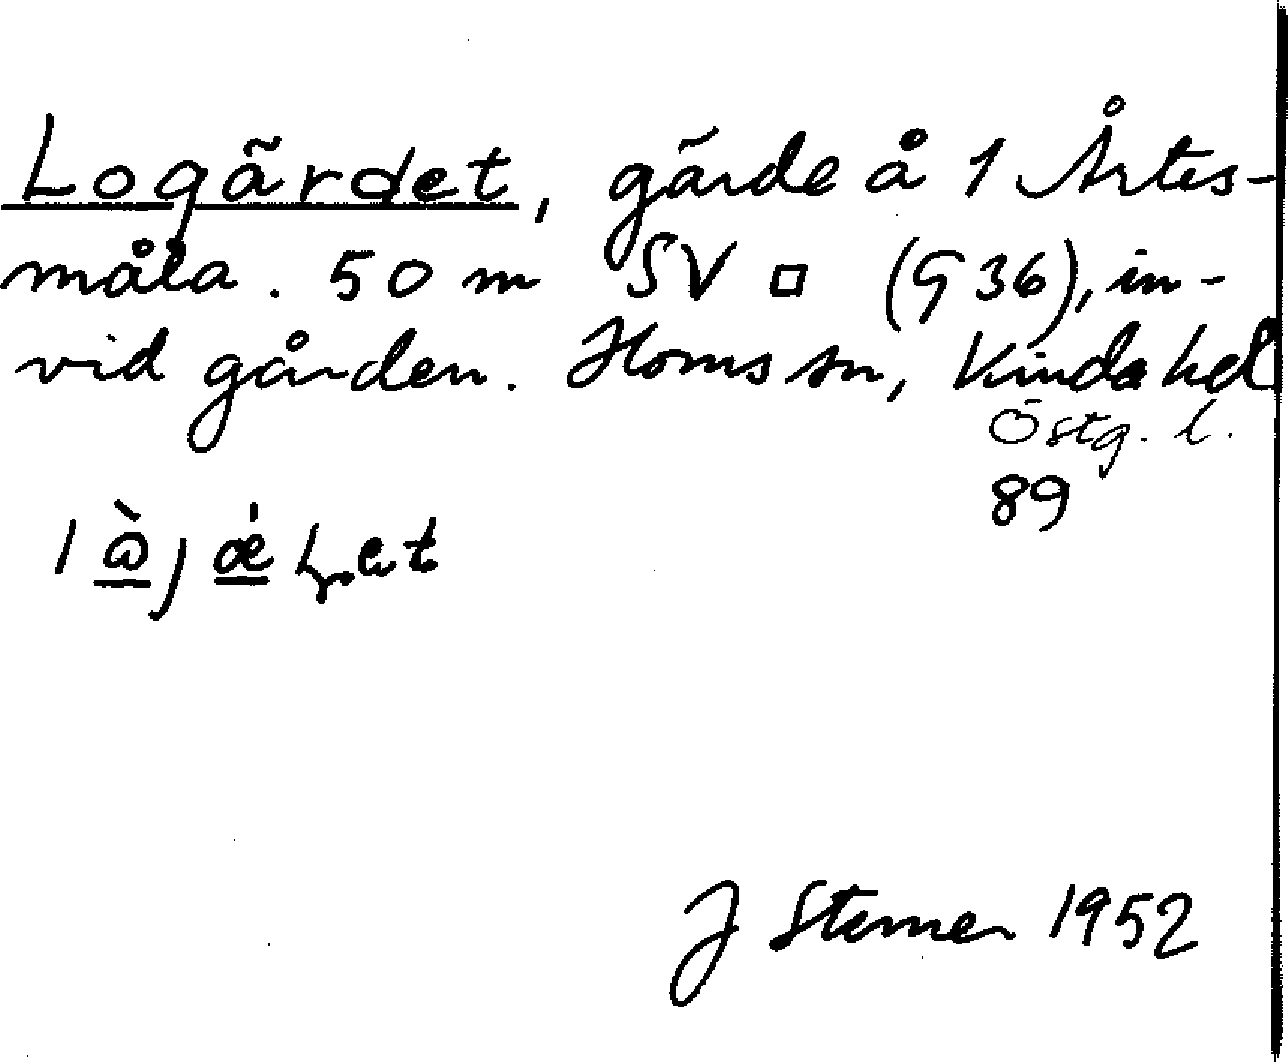 Logärdet, gärde å 1 Årtes-
måla. 50 m SV □ (G 36), in-
vid gården. Horns sn, Kinda hd
Östg. l.
89
J Sterner 1952